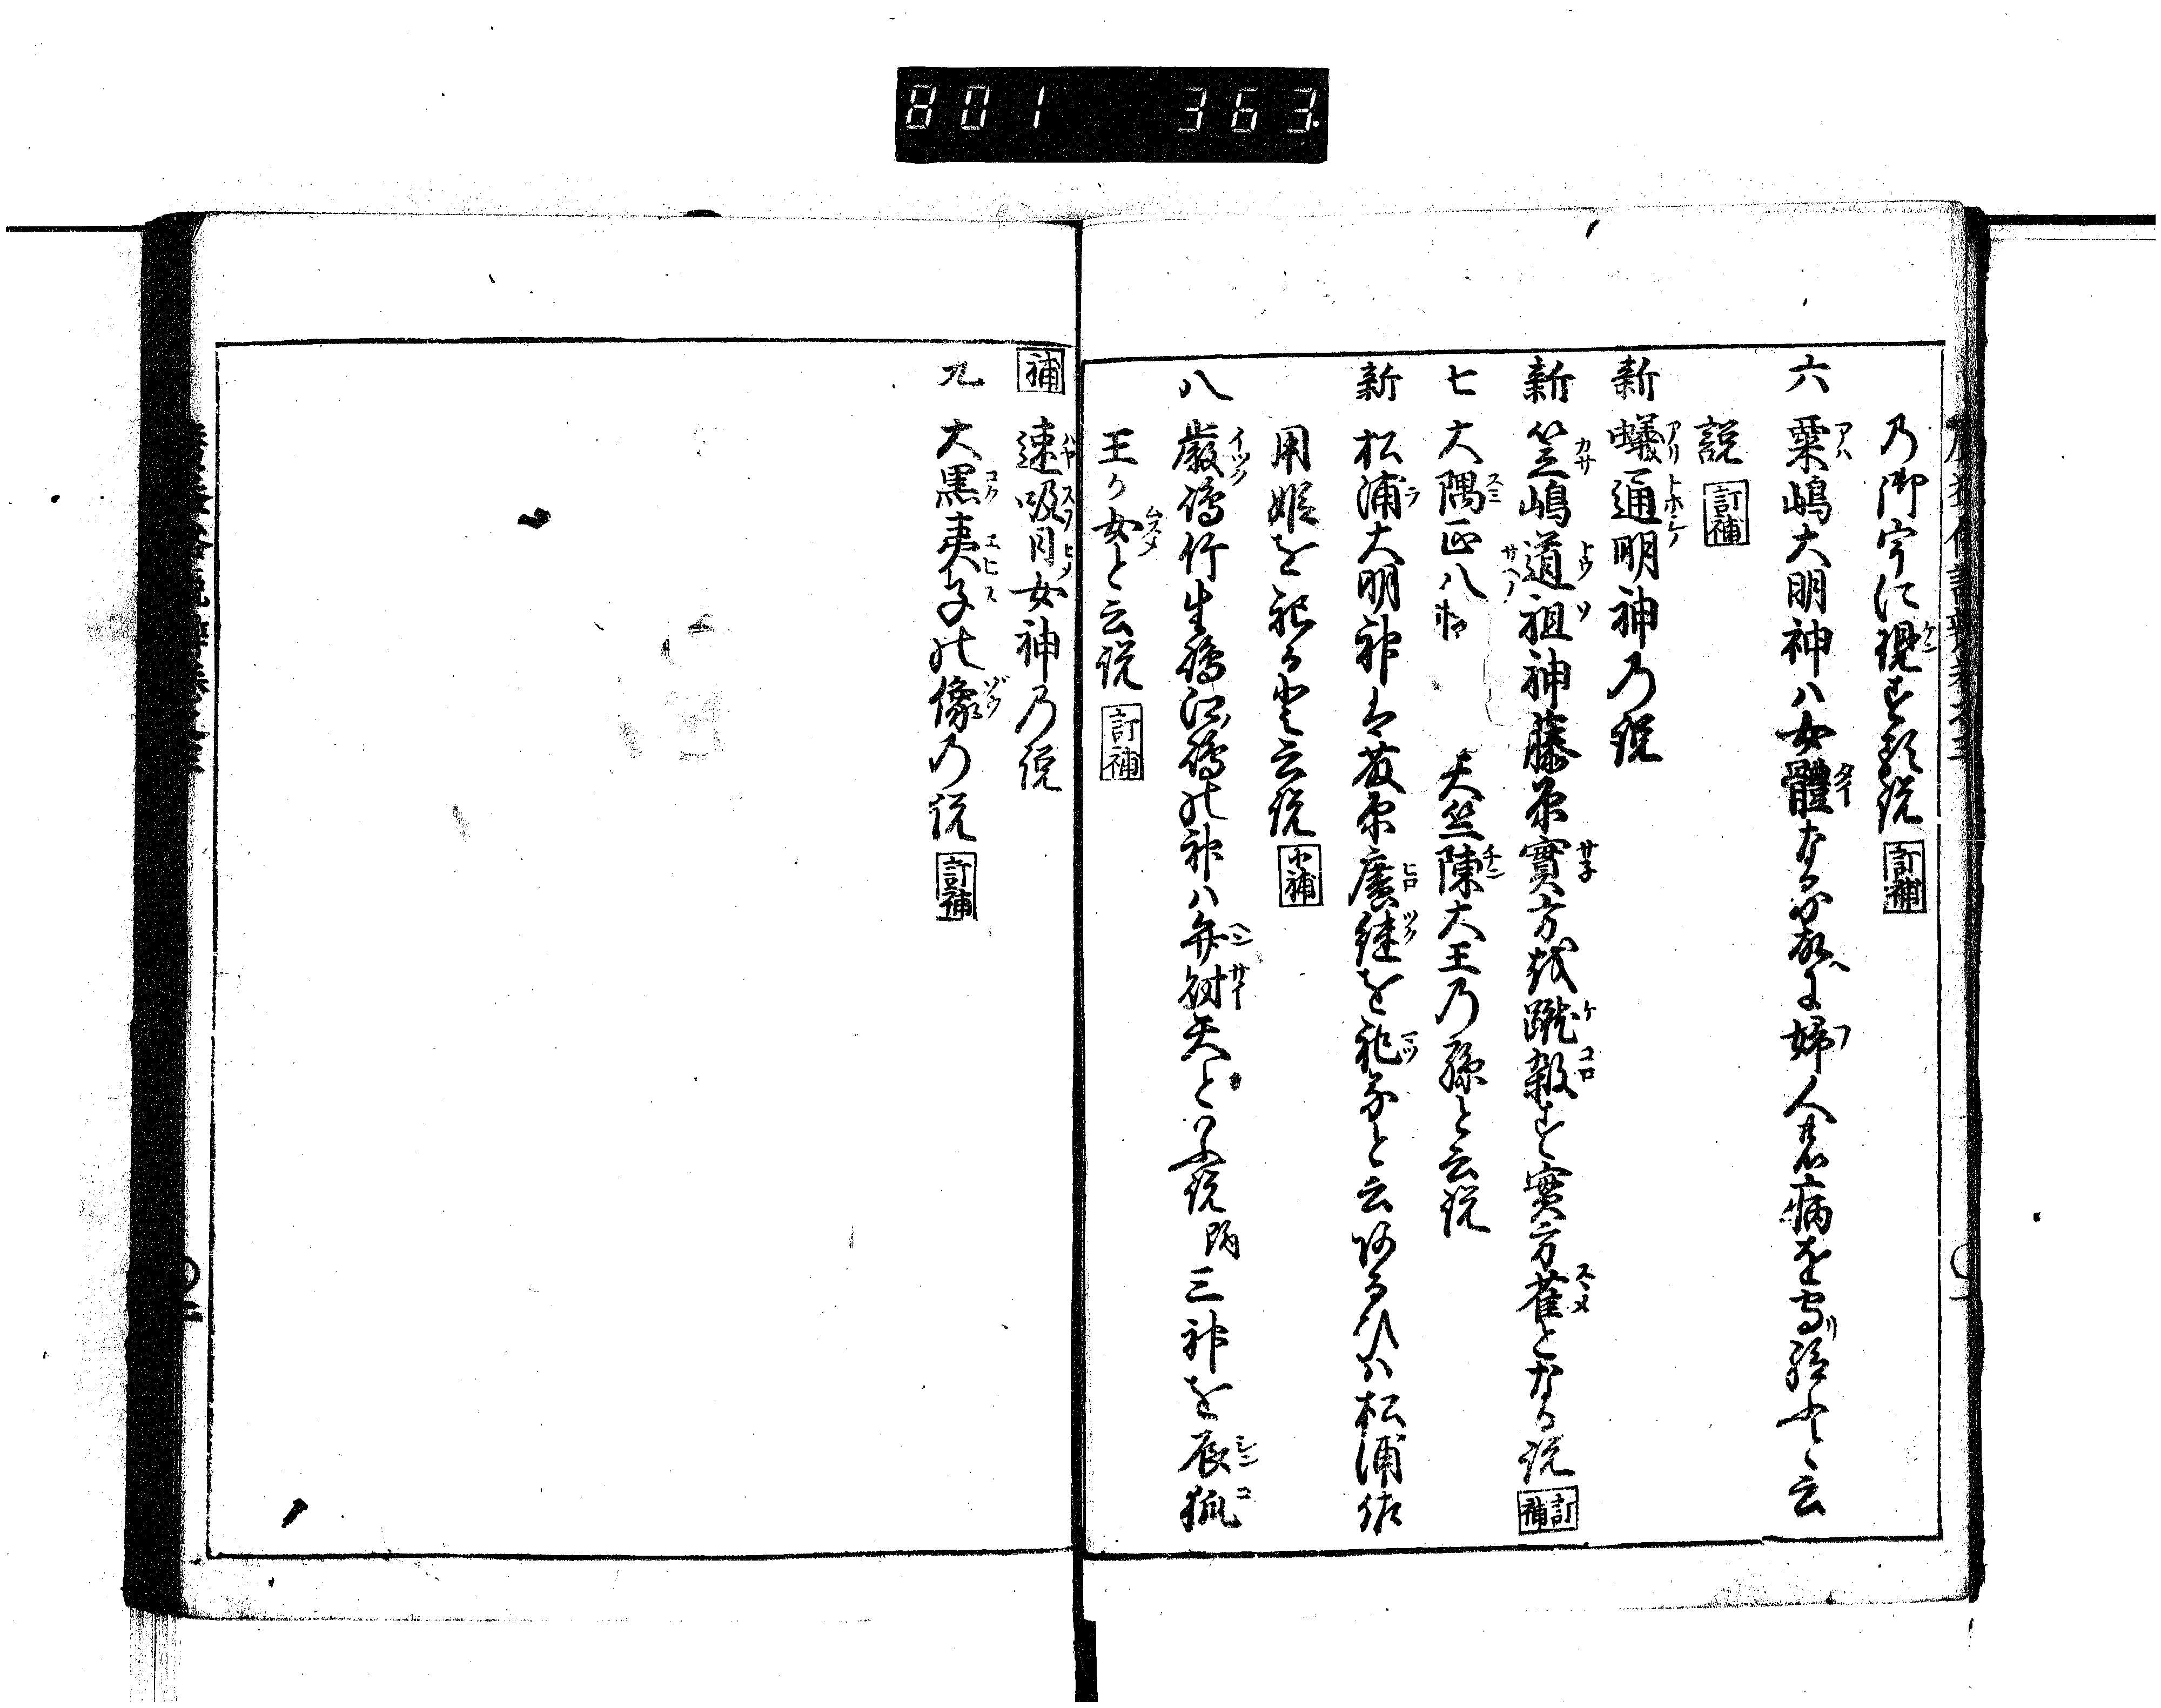 801 363.
乃御宇に現ずる説 訂補
六 粟嶋大明神ハ女體なるが故に婦人の病を守り給ふと云
説 訂補
新 蟻通明神乃説
新 笠嶋道祖神藤原實方を蹴殺す實方雀となる説 訂補
七 大隅正八幡 天竺陳大王乃孫と云説
新 松浦大明神ハ藤原廣継を祀ると云或るひハ松浦佐
用姫を祀ると云説 小補
八 厳嶋竹生嶋江嶋の神ハ弁財天といふ説 附 三神を辰狐
王の女と云説 訂補
補 速吸日女神乃説
九 大黒夷子の像乃説 訂補